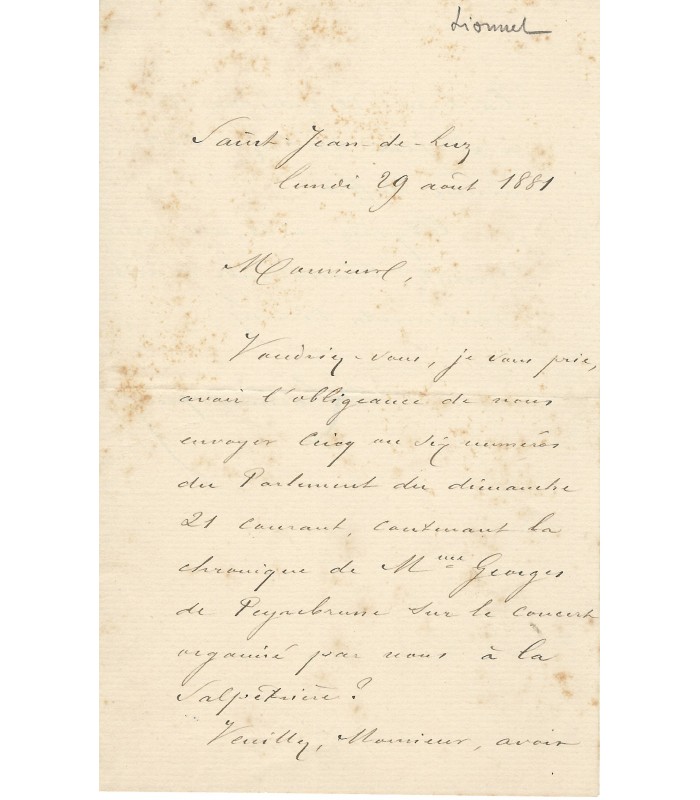 Lionnel
Saint-Jean-de-Luz
lundi 29 août 1881
Monsieur,
Voudriez-vous, je vous prie,
avoir l'obligeance de nous
envoyer cinq ou six numéros
du Parlement du dimanche
21 courant, contenant la
chronique de Mme Georges
de Peyrebrune sur le concert
organisé par nous à la
Salpétrière?
Veuillez, Monsieur, avoir